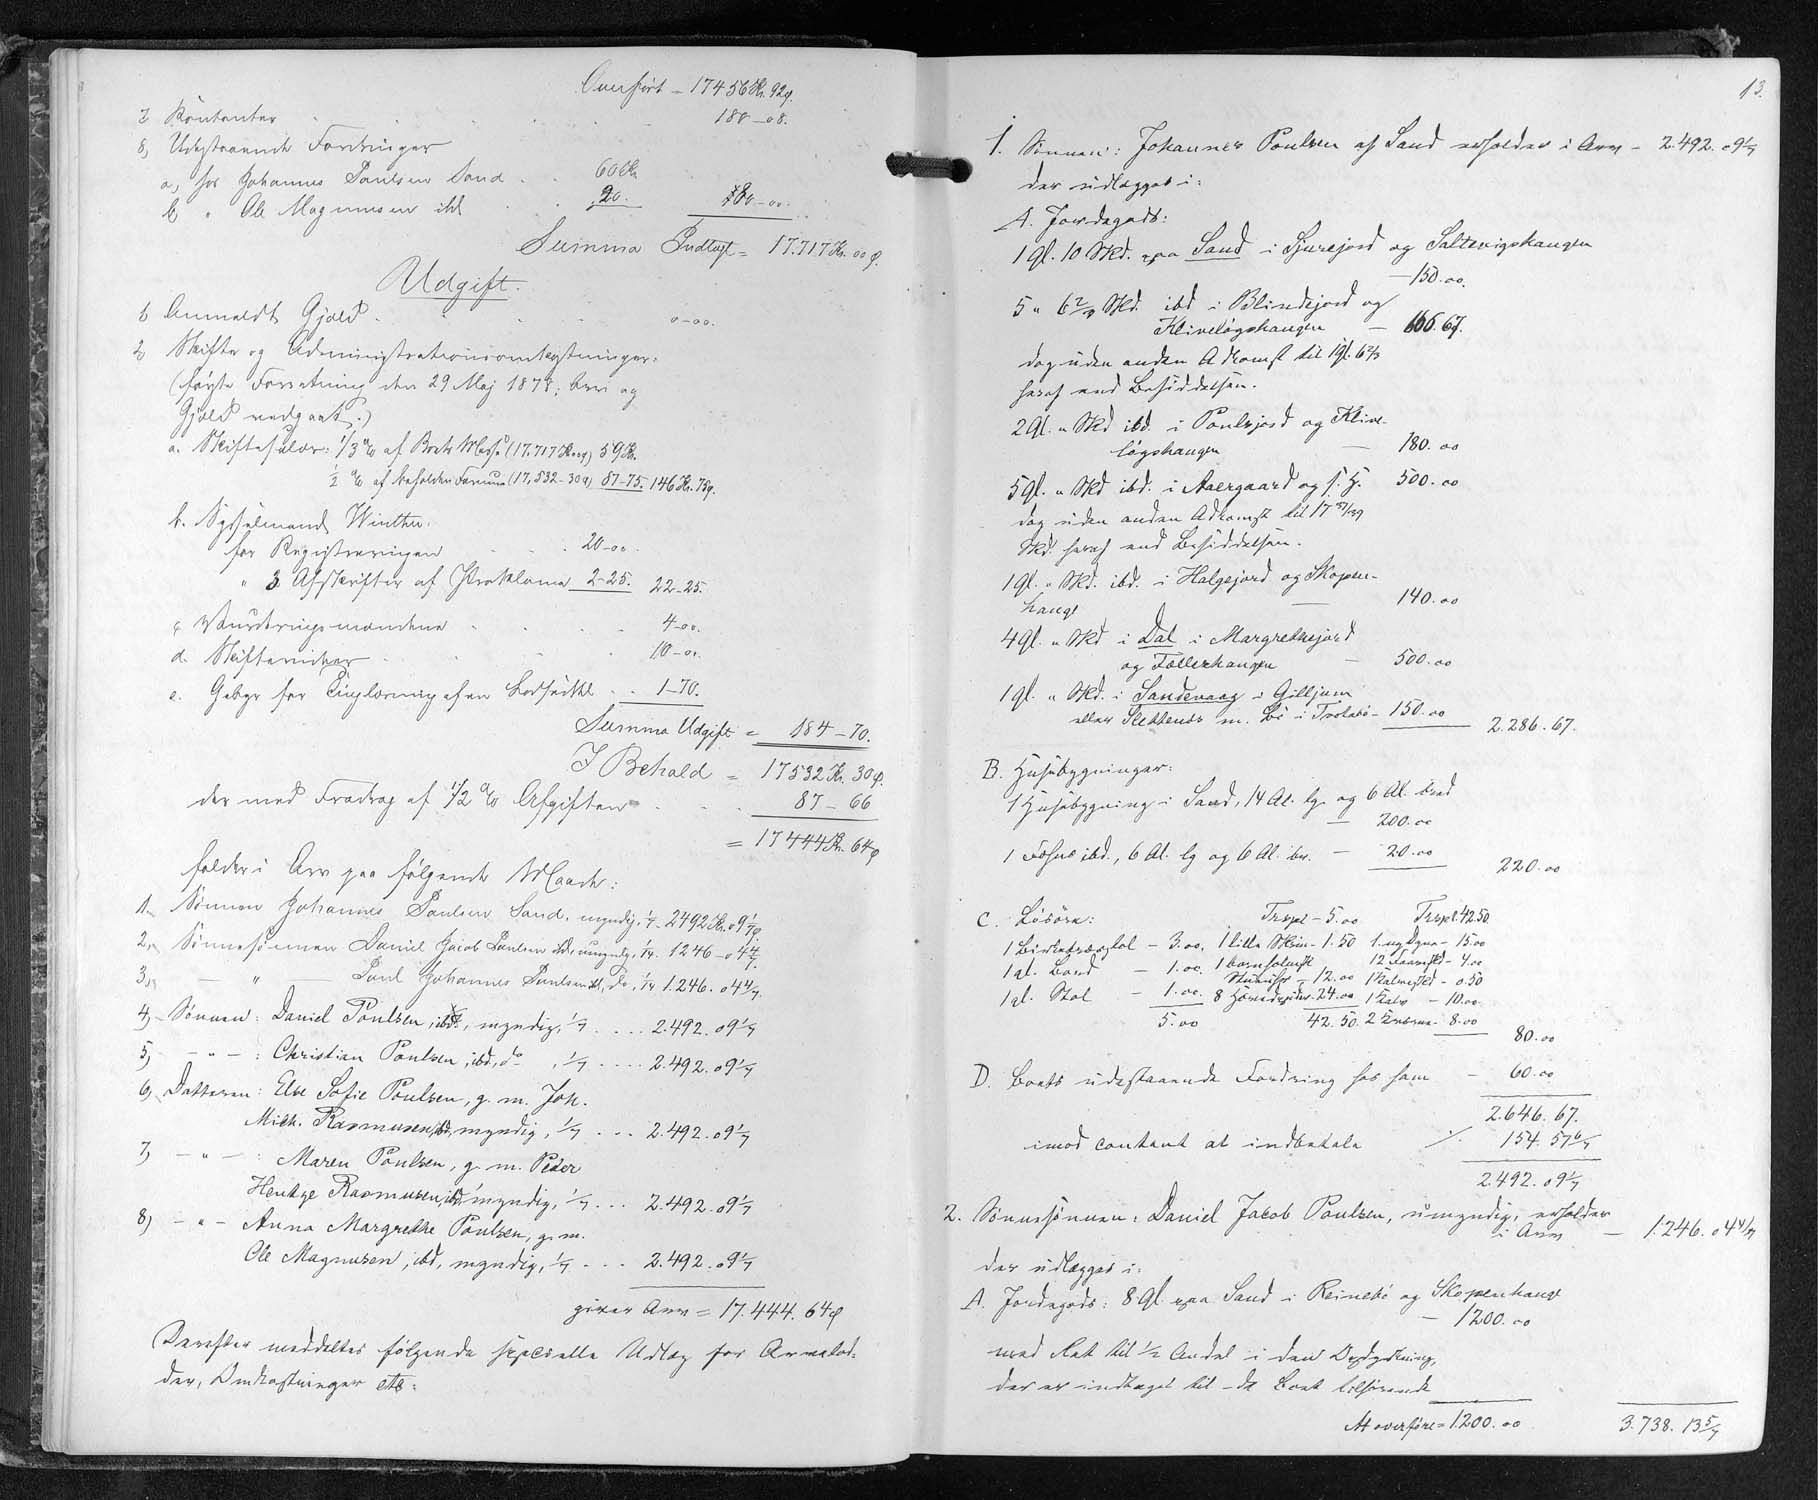 Overført – 17456 Kr. 92 ø.
7 Kontanter 180–08.
8, Udestaaende Fordringer
a, hos Johannes Poulsen Sand 60 Kr
b, " Ole Magnusen ibd 20. 80–00.
Summa Indtægt = 17.717 Kr. 00 ø.
Udgift.
1, Anmeldt Gjæld 0–00.
2, Skifte og Administrationsomkostninger:
(første Forretning den 29 Maj 1878; Arv og
Gjæld vedgaaet.)
a. Skiftesalær: 1/3 % af Boets Masse (17.717 Kr 00) 59 Kr.
1/2 % af beholden Formue (17,532–30 ø) 87–75. 146 Kr. 75 ø.
b. Sysselmand Winther.
for Registreringen 20–00.
" 3 Afskrifter af Proklama 2–25. 22–25.
c, Vurderingsmændene 4–00.
d. Skiftevidner 10–00.
e. Gebyr for Tinglæsning af en Lodseddel 1–70.
Summa Udgift = 184–70.
I Behold = 17532 Kr. 30 ø.
der med Fradrag af 1/2 % Afgiften 87–66
= 17444 Kr. 64 ø
falder i Arv paa følgende Maade:
1., Sønnen Johannes Poulsen Sand, myndig, 1/7 2492 Kr. 09 1/7 ø
2., Sønnesønnen Daniel Jacob Poulsen ibd, umyndig, 1/14 1246–04 4/7.
3., — " — Poul Johannes Poulsen ibd, do, 1/14 1.246.04 4/7.
4, Sønnen: Daniel Poulsen, ibd., myndig, 1/7 .... 2.492.09 1/7
5, – " – : Christian Poulsen, ibd, do , 1/7 .... 2.492.09 1/7
6, Datteren: Else Sofie Poulsen, g. m. Joh.
Mich. Rasmusen, ibd, myndig, 1/7 ... 2.492.09 1/7
7, – " – : Maren Poulsen, g. m. Peder
Hentze Rasmusen, ibd, myndig, 1/7 ... 2.492.09 1/7
8, – " – Anna Margrethe Poulsen, g. m.
Ole Magnusen, ibd, myndig, 1/7 ... 2.492.09 1/7
giver Arv = 17.444.64 ø
Derefter meddeltes følgende specielle Udlæg for Arvelod-
der, Omkostninger etc:
13.
1. Sønnen: Johannes Poulsen af Sand erholder i Arv – 2.492.09 1/7
der udlægges i:
A. Jordegods:
1 Gl. 10 Skd. paa Sand i Sjurejord og Saltevigshaugen
– 150.00.
5 " 6 2/3 Skd. ibd i Blindejord og
Kliveløgshaugen – 666.67.
dog uden anden Adkomst til 1 Gl. 6 2/3
heraf end Besiddelsen.
2 Gl. " Skd ibd. i Poulsjord og Klive-
løgshaugen — 180.00
5 Gl. " Skd ibd. i Aaergaard og s. H. 500.00
dog uden anden Adkomst til 17
Skd. heraf end Besiddelsen.
1 Gl. " Skd. ibd. i Halgejord og Skopen-
hauge — 140.00
4 Gl. " Skd i Dal i Margrethejord
og Fællerhaugen — 500.00
1 Gl. " Skd. i Sandevaag i Gilljum
eller m. Bø i Trolabø – 150.00 2.286.67.
B. Husebygninger:
1 Husebygning i Sand, 14 Al. lg. og 6 Al. bred
— 200.00
1 Fæhus ibd., 6 Al. lg og 6 Al. br. — 20.00 220.00
C. Løsøre: Trspt – 5.00 Trspt. 42.50
1 Birketræsstol – 3.00. 1 lille Skrin – 1.50 1 ny Dyne – 15.00
1 gl. Bord – 1.00. 1 bornholmsk 12 Faareskd – 4.00
Stueuhr – 12.00 1 Kalveskd – 0.50
1 gl. Stol – 1.00. 8 Høveder 24.00 1 Kalv – 10.00
5.00 42.50. 2 – 8.00 80.00
D. Boets udestaaende Fordring hos ham – 60.00
2.646.67.
imod contant at indbetale ./. 154.57 6/7
2492.09 1/7
2. Sønnesønnen: Daniel Jacob Poulsen, umyndig, erholder
i Arv – 1.246.04 4/7
der udlægges i:
A. Jordegods: 8 Gl. paa Sand i Reinebø og Skopenhauge
– 1200.00
med Ret til 1/2 Andel i den Opdyrkning,
der er indtaget til de Boet tilhørende
At overføre = 1200.00 3.738.13 5/7